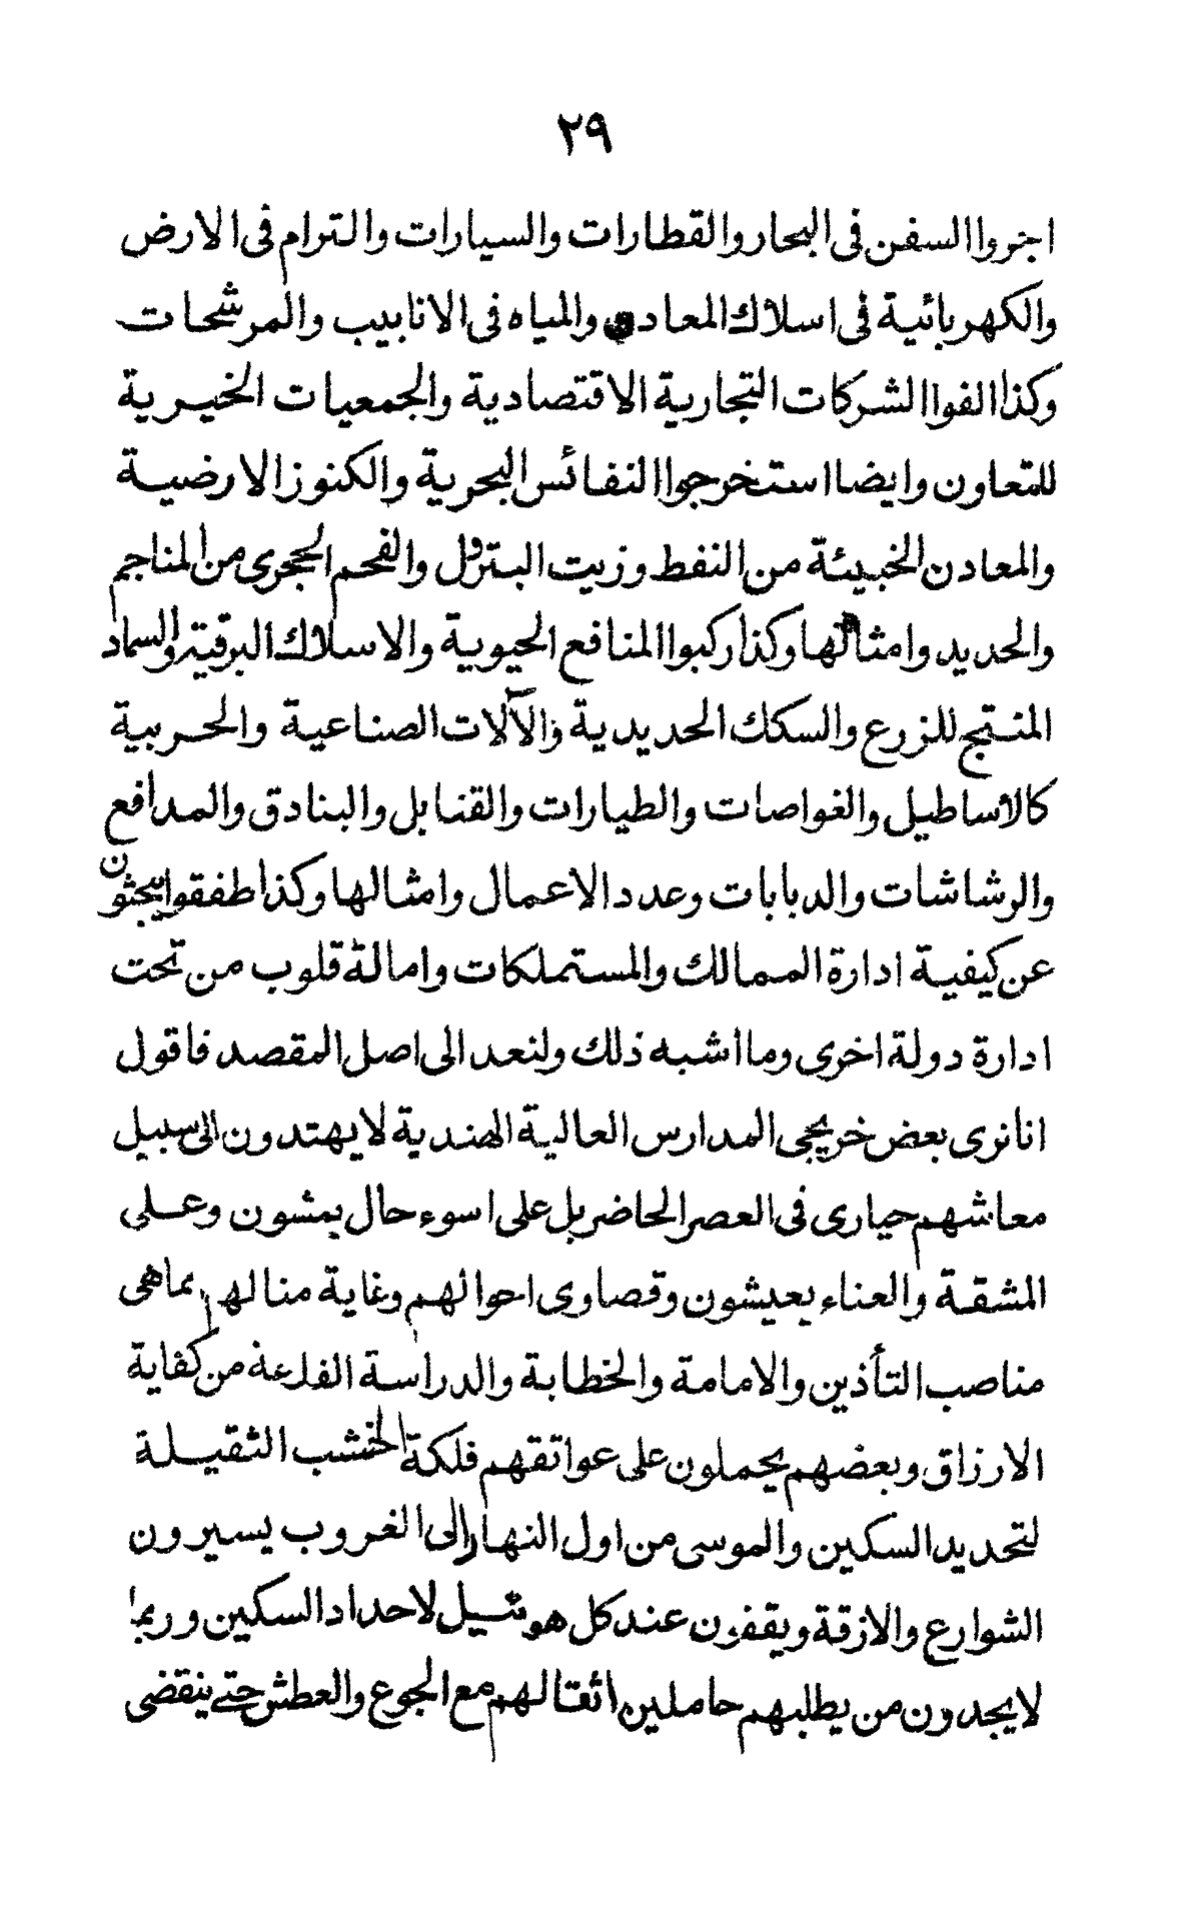 ٢٩
اجروا السفن فى البحار والقطارات والسيارات والترام فى الارض
والكهربائية فى اسلاك المعادن والمياه فى الانابيب والمرشحات
وكذا الفوا الشركات التجارية الاقتصادية والجمعيات الخيرية
للتعاون وايضا استخرجوا النفائس البحرية والكنوز الارضية
والمعادن الخبيئة من النفط وزيت البترول والفحم الحجرى من المناجم
والحديد وامثالها وكذا ركبوا المنافع الحيوية والاسلاك البرقية والسماد
المنتج للزرع والسكك الحديدية والآلات الصناعية والحربية
كالاساطيل والغواصات والطيارات والقنابل والبنادق والمدافع
والرشاشات والدبابات وعدد الاعمال وامثالها وكذا طفقوا يبحثون
عن كيفية ادارة الممالك والمستملكات وامالة قلوب من تحت
ادارة دولة اخرى وما اشبه ذلك ولنعد الى اصل المقصد فاقول
انا نرى بعض خريجى المدارس العالية الهندية لا يهتدون الى سبيل
معاشهم حيارى فى العصر الحاضر بل على اسوء حال يمشون وعلى
المشقة والعناء يعيشون وقصاوى احوالهم وغاية منالهم بما هى
مناصب التأذين والامامة والخطابة والدراسة الفارغة من كفاية
الارزاق وبعضهم يحملون على عواتقهم فلكة الخشب الثقيلة
لتحديد السكين والموسى من اول النهار الى الغروب يسيرون
الشوارع والازقة ويقفون عند كل هوشيل لاحداد السكين وربما
لا يجدون من يطلبهم حاملين اثقالهم مع الجوع والعطش حتے ينقضى